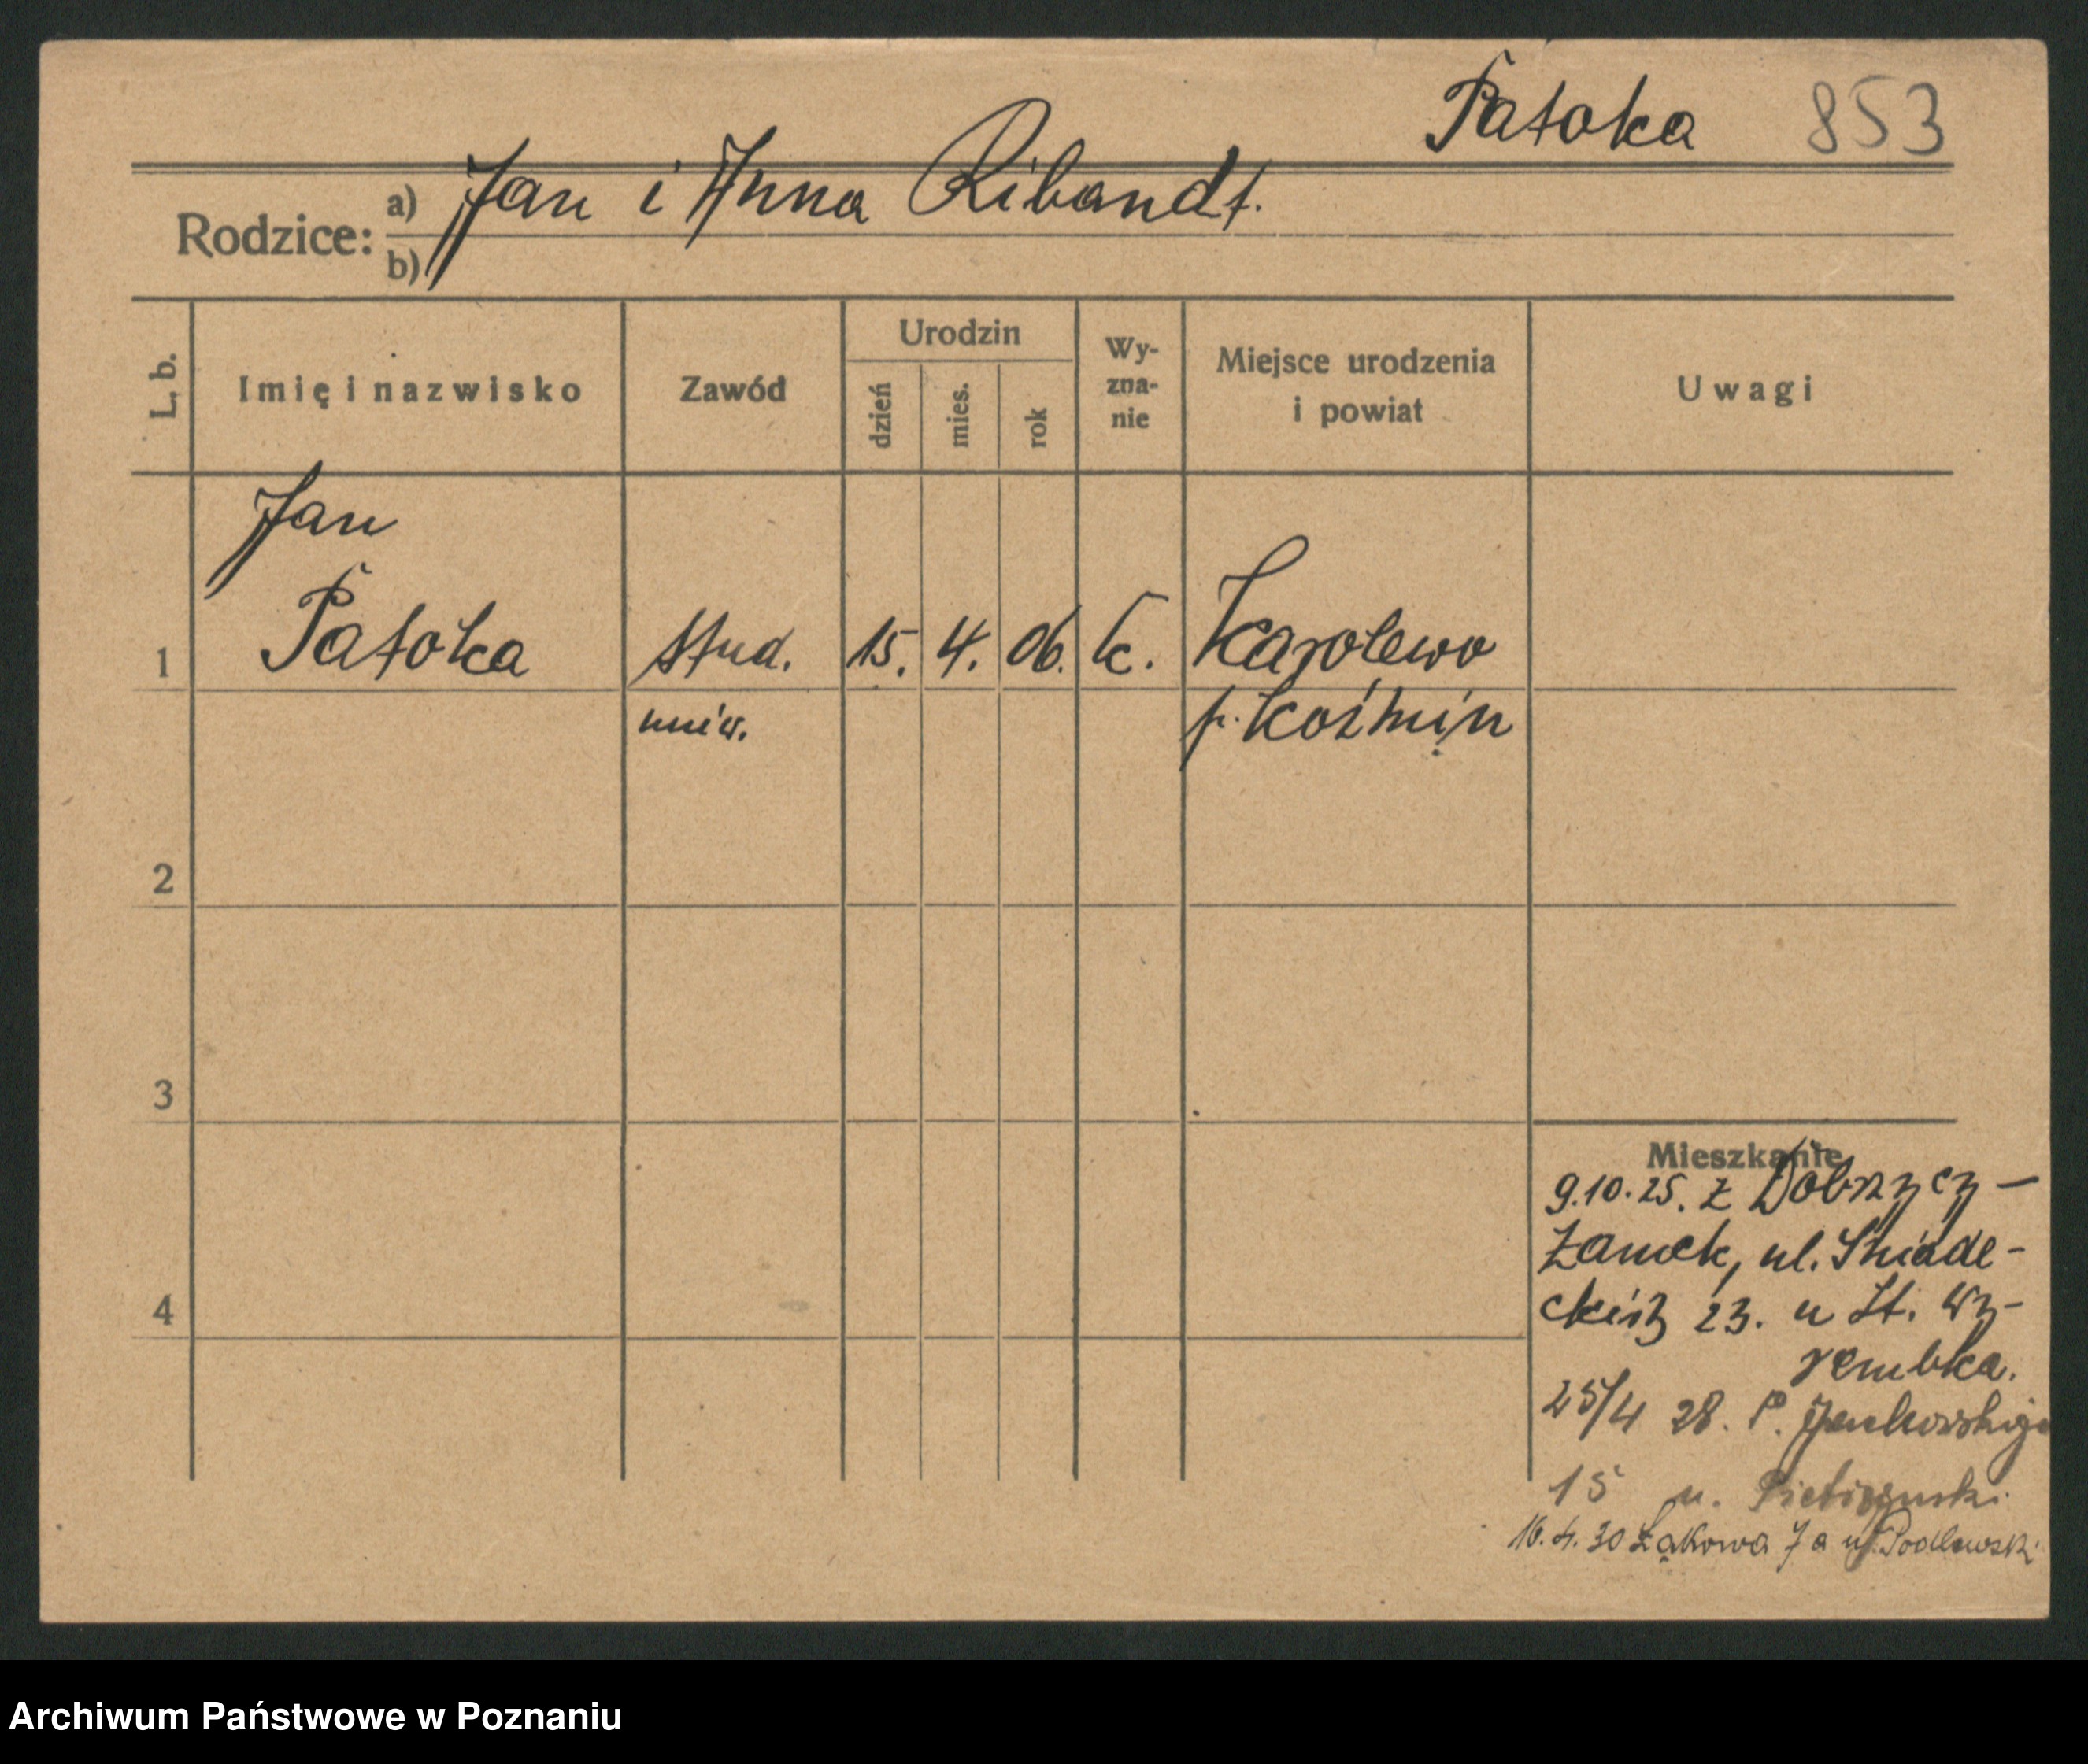 Patoka 853
Rodzice: a) Jan i Anna Ribandt.
b)
L. b.
Imię i nazwisko
Zawód
Urodzin
dzień
mies.
rok
Wy-
zna-
nie
Miejsce urodzenia
i powiat
Uwagi
Jan
1 Patoka stud. 15. 4. 06. k. Karolewo
uniw. p. Koźmin
2
3
Mieszkanie
9.10.25. z Dobrzycy –
Zamek, ul. Śniade-
ckich 23. u St. Wy-
rembka.
4
25/4 28. P.
15 u.
16.4.30 Łąkowa 7a u Podlewski
Archiwum Państwowe w Poznaniu